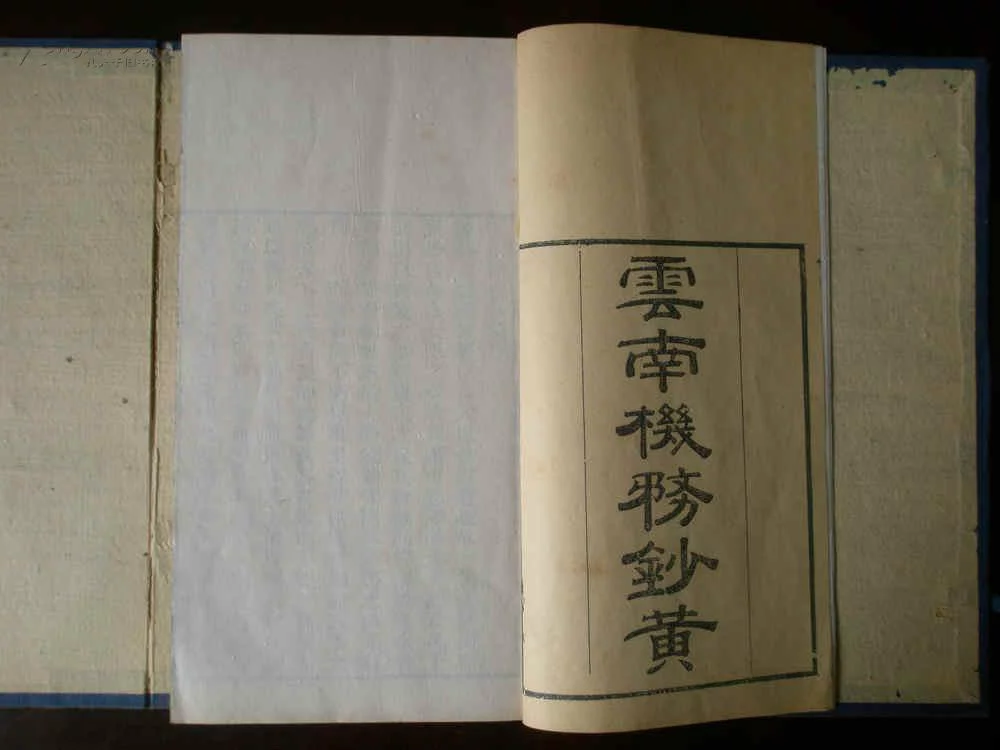 雲南機務鈔黄